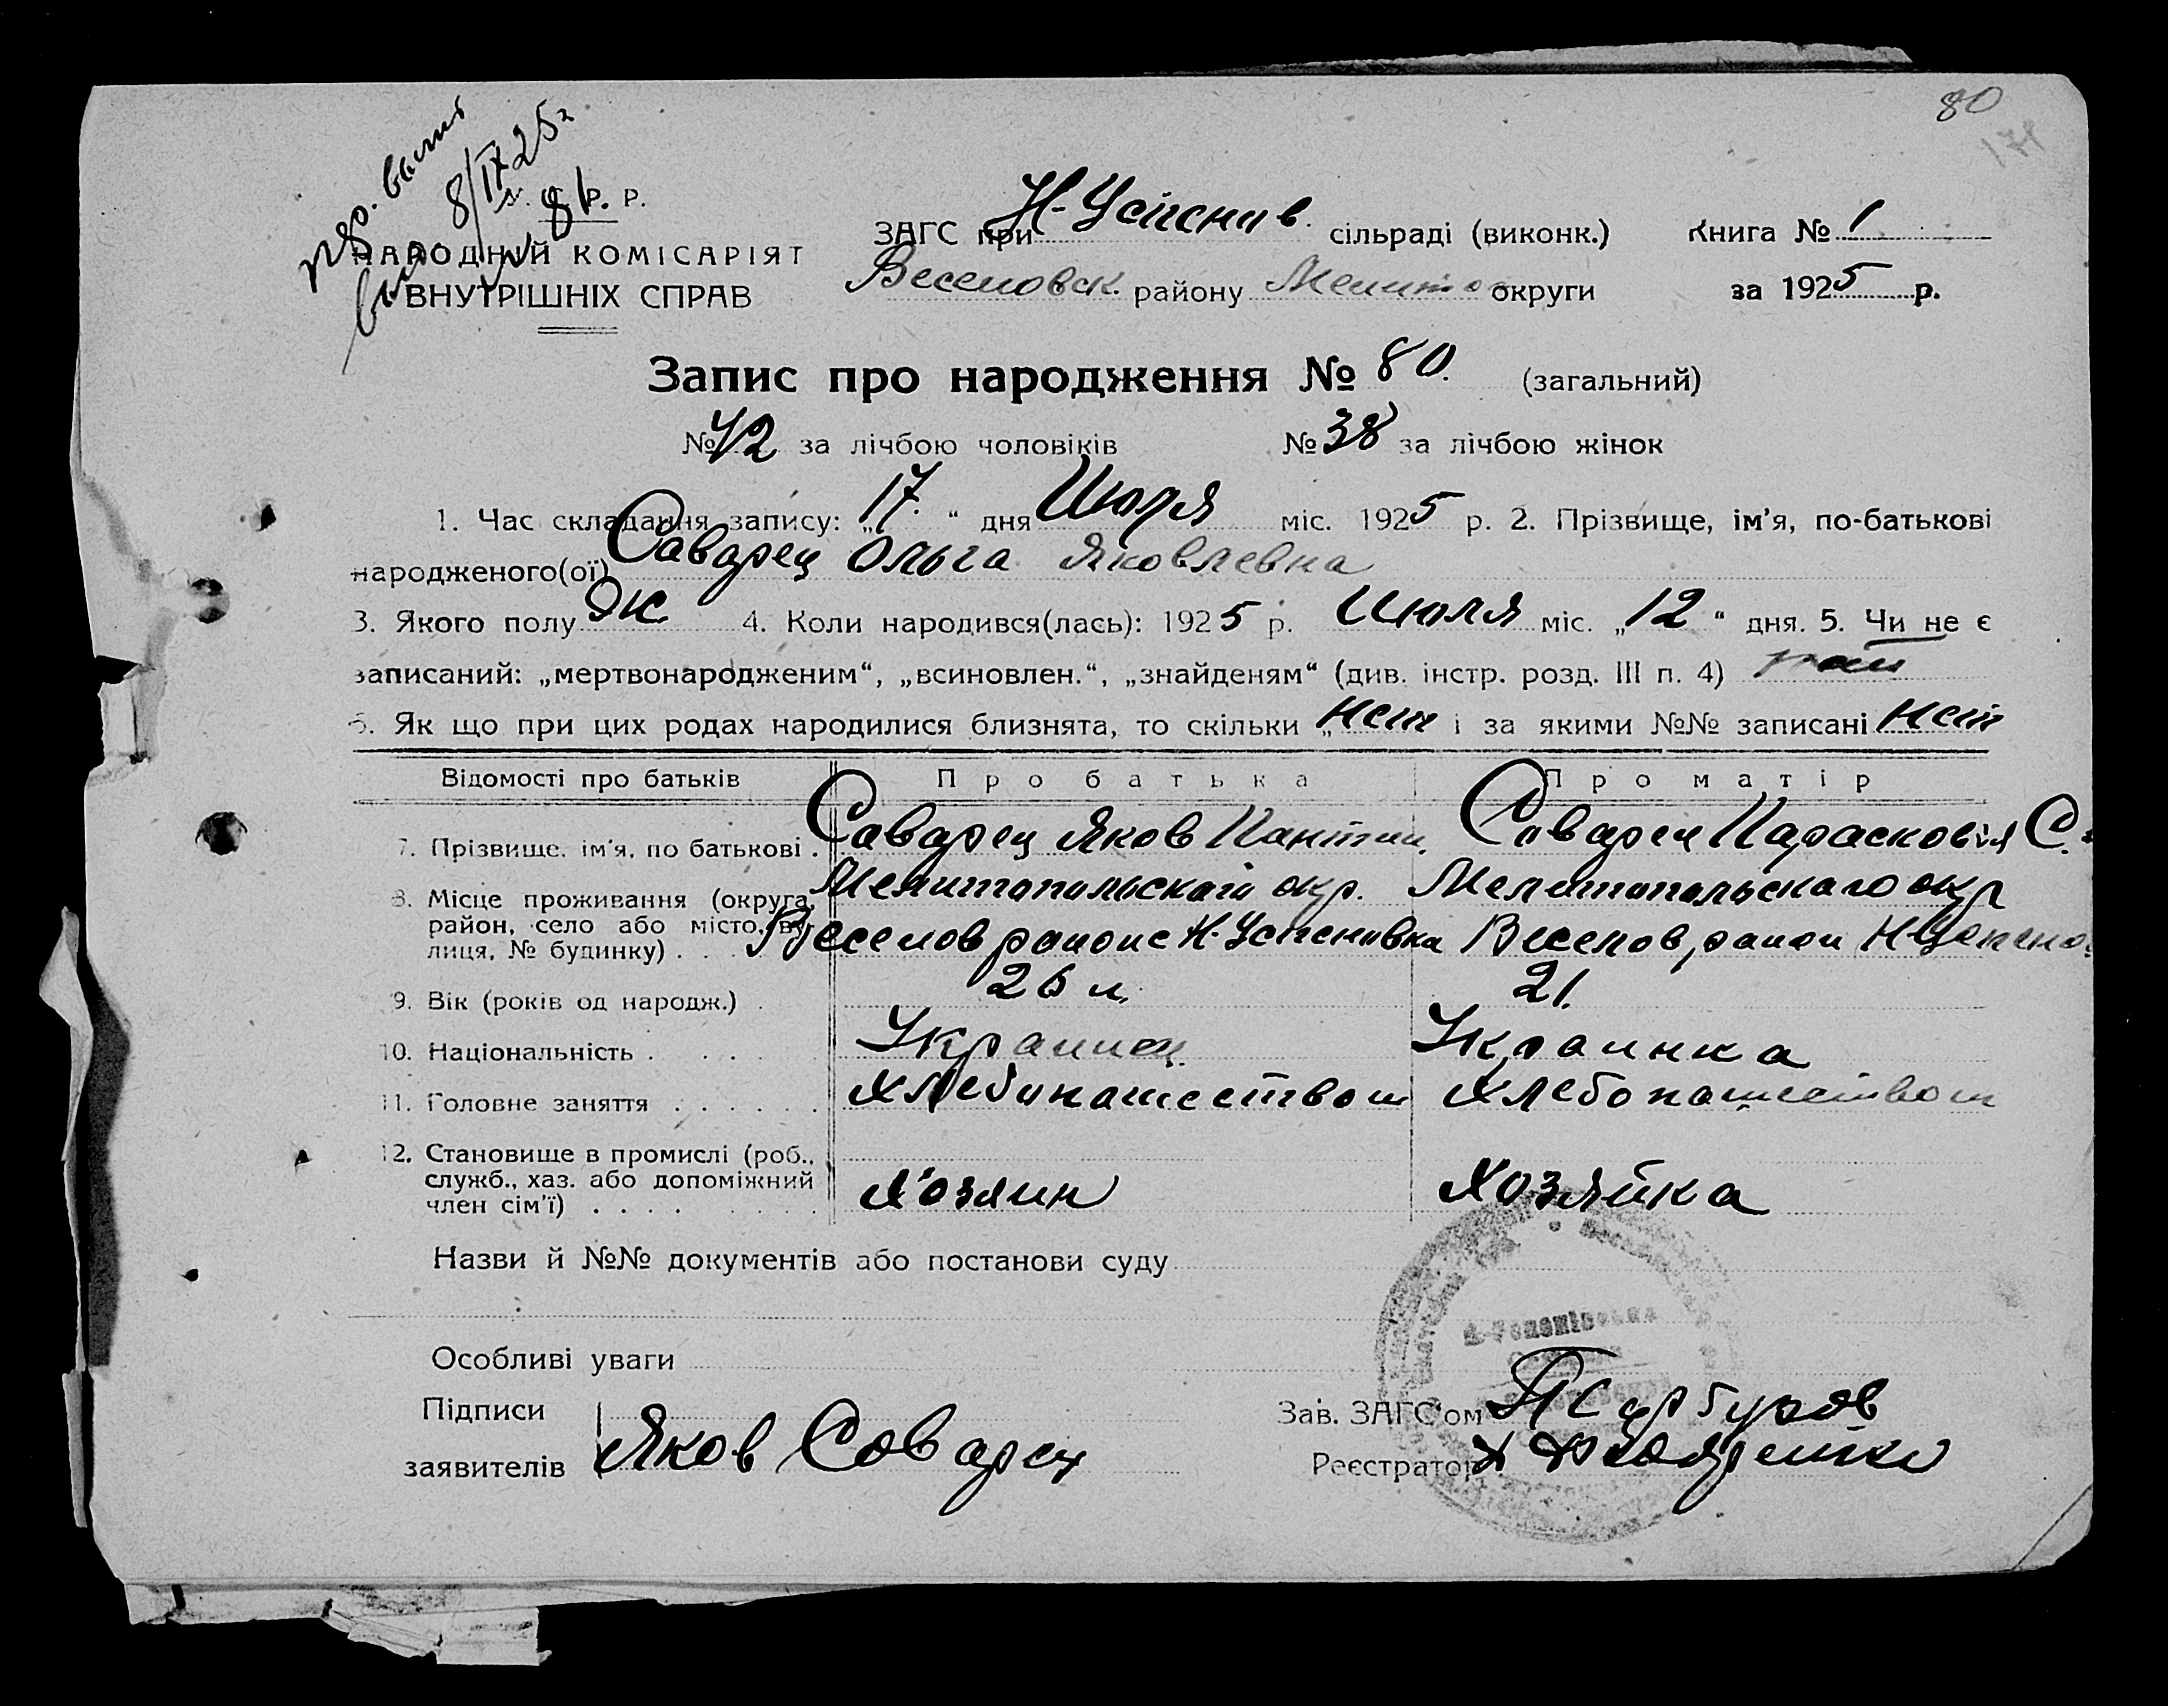 80
8/IX 25 г
№ 81
Р. Р.
НАРОДНІЙ КОМІСАРІЯТ
ВНУТРІШНІХ СПРАВ
ЗАГС при Н-Успенив. сільраді (виконк.) Книга № 1
Веселовск. району Мелито округи за 1925 р.
Запис про народження № 80. (загальний)
№ 42 за лічбою чоловіків № 38 за лічбою жінок
1. Час складання запису: „17.“ дня Июля міс. 1925 р. 2. Прізвище, ім’я, по-батькові
народженого(ої) Саварец Ольга Яковлевна
3. Якого полу Ж 4. Коли народився(лась): 1925 р. Июля міс. „12“ дня. 5. Чи не є
записаний: „мертвонародженим“, „всиновлен.“, „знайденям“ (див. інстр. розд. III п. 4)
6. Як що при цих родах народилися близнята, то скільки „нет і за якими №№ записані нет
Відомості про батьків Про батька Про матір
7. Прізвище, ім’я, по батькові . Саварец Яков Пантил. Саварец Парасковія С.
8. Місце проживання (округа, район, село або місто, вулиця, № будинку) . . . Мелитопольскаго окр. Мелитопольскаго окр
Веселов районе Н-Успеновка Веселов, район Н-Успено
9. Вік (років од народж.) . 26 л. 21.
10. Національність . . . . Украинец Украинка
11. Головне заняття . . . . . . Хлебопашеством Хлебопашеством
12. Становище в промислі (роб., служб., хаз. або допоміжний член сім’ї) . . . . Хозяин Хозяйка
Назви й №№ документів або постанови суду
Особливі уваги
Підписи
заявителів Яков Соварец
Зав. ЗАГС’ом
Реєстратор